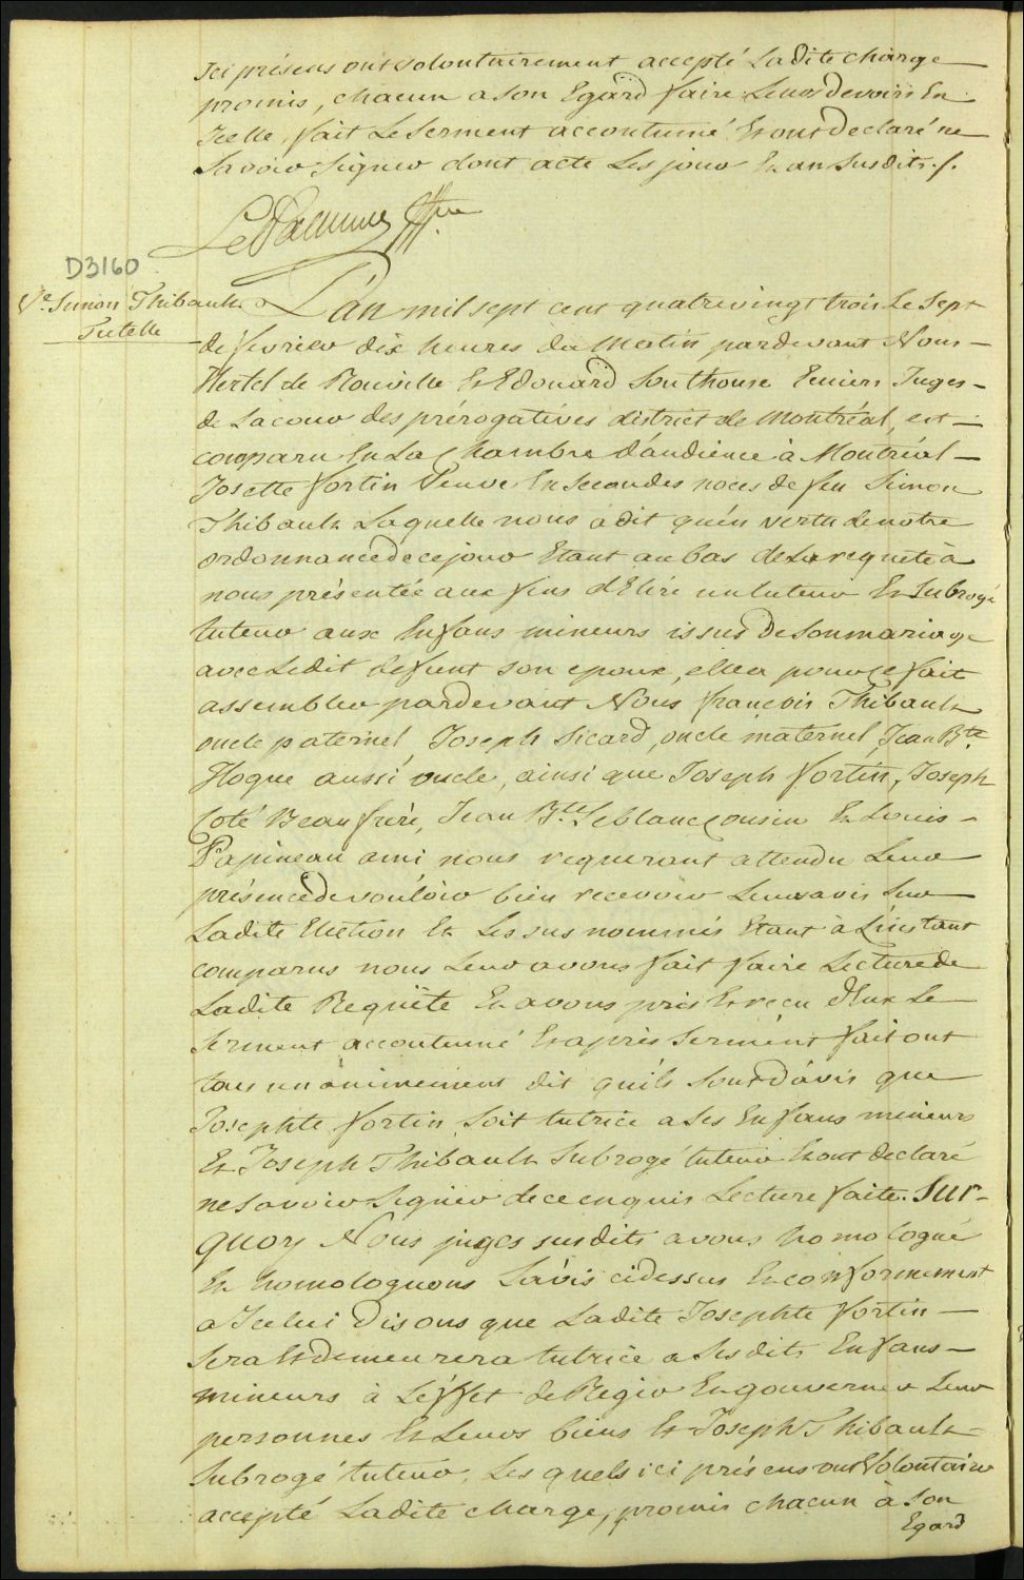 Ici présens ont volontairement accepté Ladite charge
promis, chacun a son Egard faire Leurs devoirs En
Icelle, fait Le Serment accoutumé Et ont Declaré ne
Savoir Signer dont acte Les jour Et an Susdits ./.
D3160
Ve. Simon Thibault
Tutelle
L'an mil sept cent quatrevingt trois Le Sept
de fevrier dix heures du Matin pardevant Nous
Hertel de Rouville Et Edouard Southouse Ecuiers Juges
de La cour des prérogatives district de Montréal, est
comparu En La Chambre d'audience à Montréal
Josette fortin Veuve En Secondes noces de feu Simon
Thibault Laquelle nous a dit qu'en vertu de notre
ordonnance de ce jour Etant au bas de La requête à
nous présentée aux fins d'Elire un tuteur Et Subrogé
tuteur aux Enfans mineurs issus De Son mariage
avec Ledit defunt son epoux, elle a pour ce fait
assembler pardevant Nous françois Thibault
oncle paternel, Joseph Sicard, oncle maternel, Jean Bte
Hogue aussi oncle, ainsi que Joseph fortin, Joseph
Coté Beaufrère, Jean Bte. Leblanc Cousin Et Louis
Papineau ami nous requerant attendu Leur
présence de vouloir bien recevoir Leurs avis Sur
Ladite Election Et Les sus nommés Etant à L'instant
comparus nous Leur avons fait faire Lecture de
Ladite Requête En avons pris Et reçu d'Eux Le
Serment accoutumé Et après Serment fait ont
tous unanimement dit quils Sont D'avis que
Josephte fortin Soit tutrice a Ses Enfans mineurs
Et Joseph Thibault Subrogé tuteur Et ont declaré
ne Savoir Signer de ce enquis Lecture faite. Sur-
quoy Nous juges susdits avons homologué
Et homologuons L'avis cidessus Et conformement
a Icelui Disons que Ladite Josephte fortin
Sera Et demeurera tutrice a Ses dits Enfans
mineurs à L'éffet de Regir Et gouverner Leur
personnes Et Leurs biens Et Joseph Thibault
Subrogé tuteur. Lesquels ici présens ont Volontaire
accepté Ladite charge, promis chacun à Son
Egard